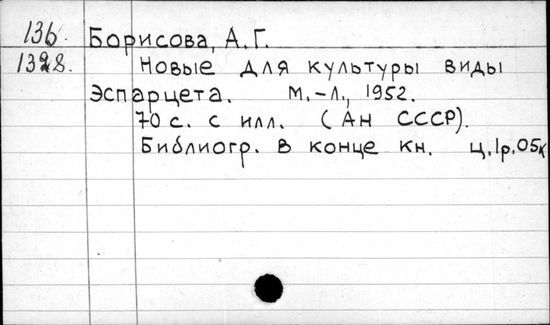 136. Борисова, А.Г.
1328. Новые для культуры виды
Эспарцета. М.-Л., 1952.
70 с. с илл. (АН СССР).
Библиогр. в конце кн. ц. 1р. 05к